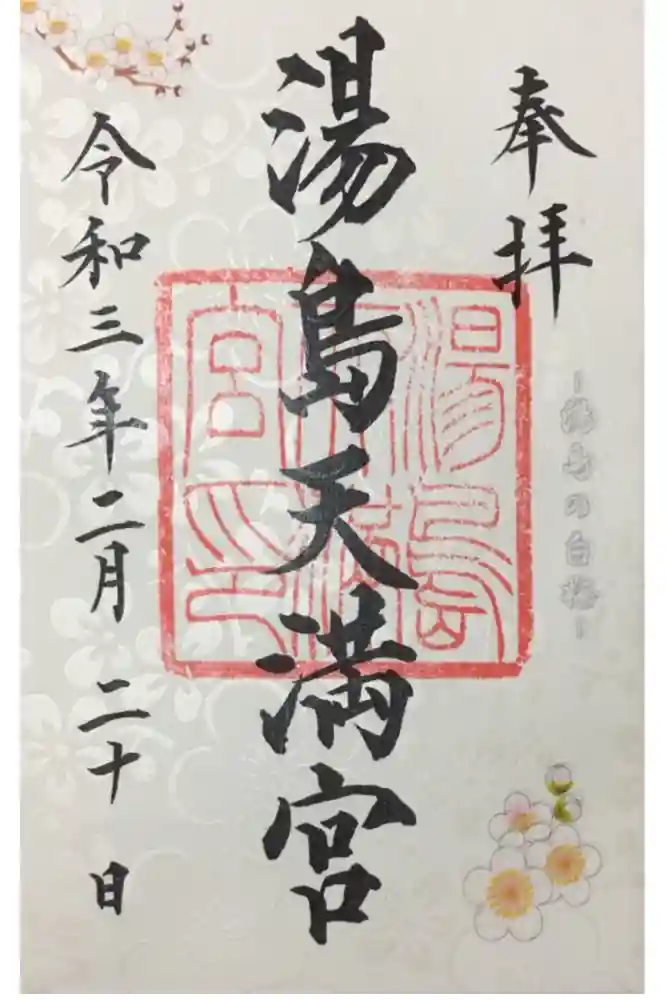 奉拝
-湯島の白梅-
湯島天満宮
湯島天満宮之印
令和三年二月二十日